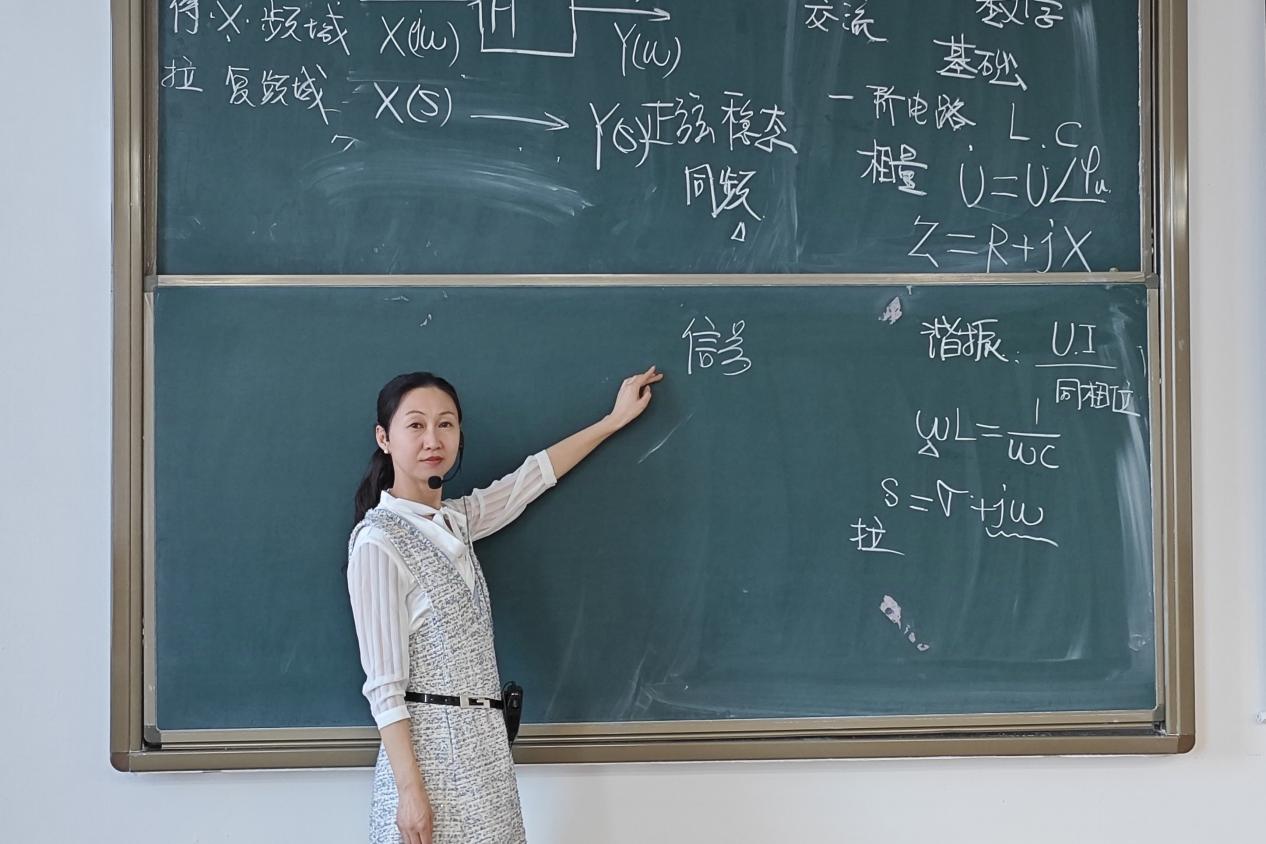 得.X.频域 X(jω) H Y(ω)
拉 复频域 X(S) Y(s)
正弦稳态
同频
交流 数字
基础
一阶电路 L.C
相量 U̇=U̇∠φu
Z=R+jX
信号
谐振: U.I
同相位
ωL=1/ωC
拉 S=σ+jω